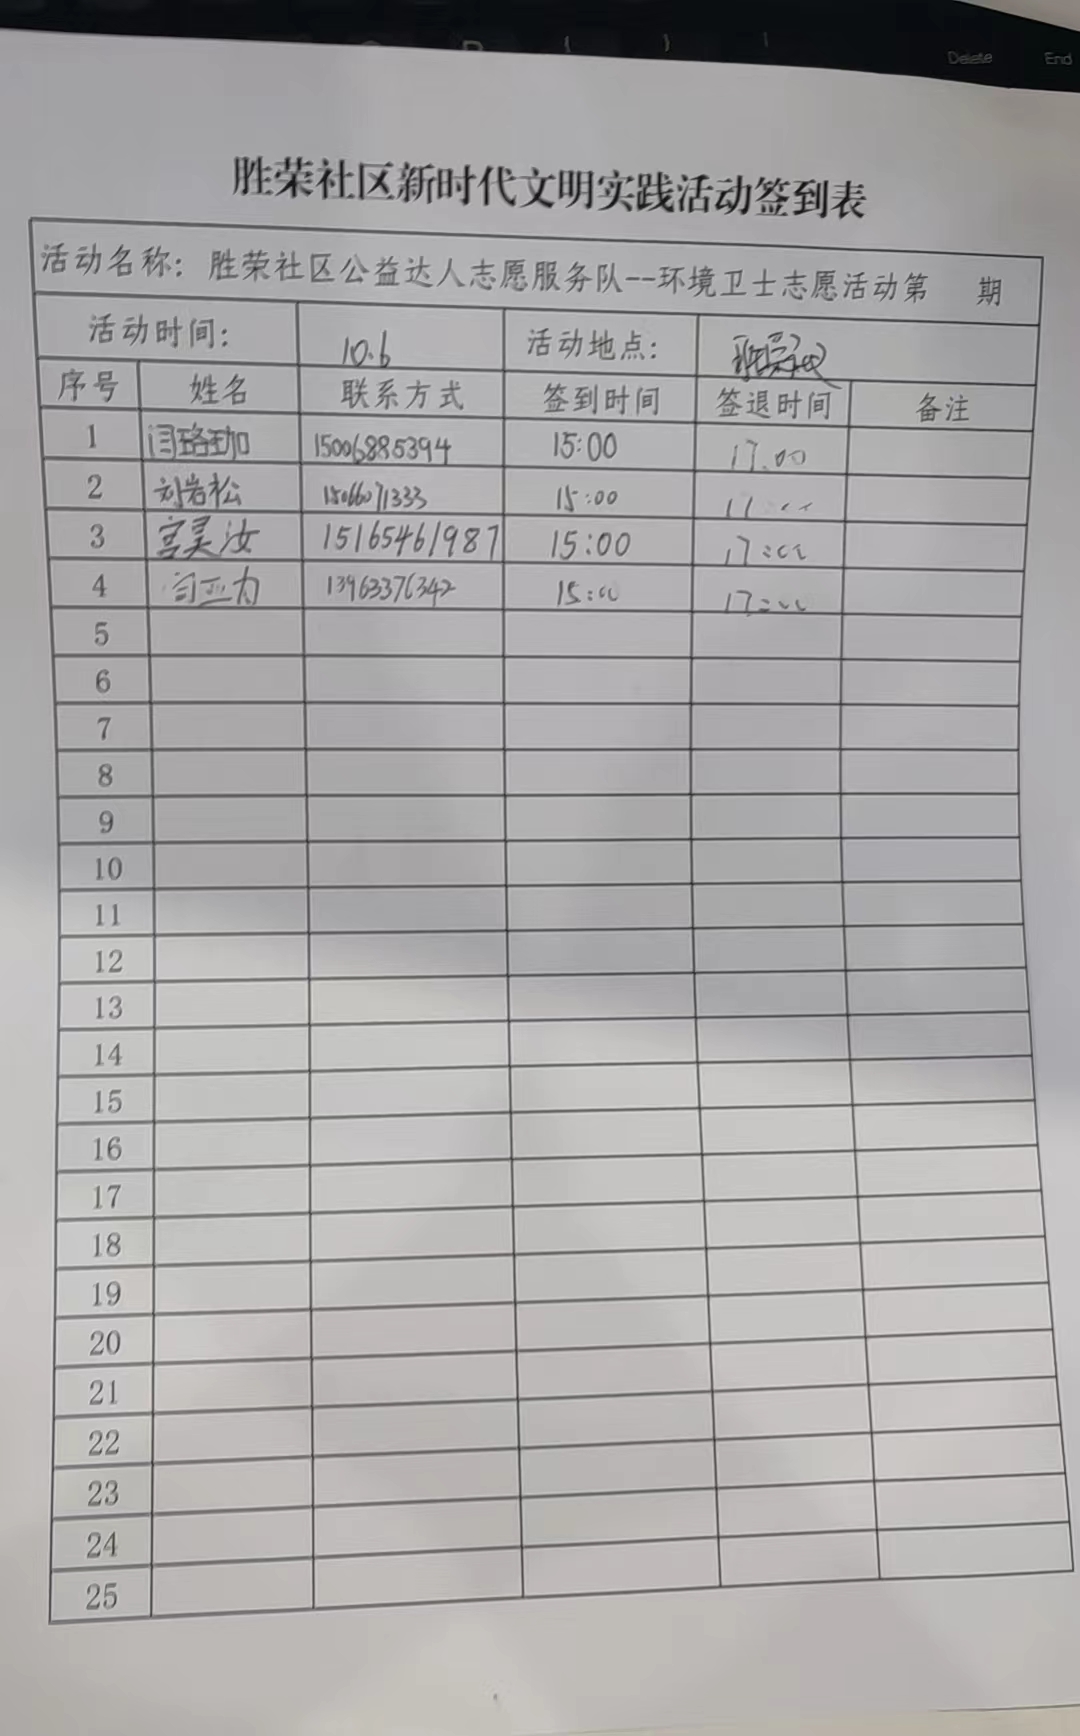 Delete End
胜荣社区新时代文明实践活动签到表
活动名称：胜荣社区公益达人志愿服务队--环境卫士志愿活动第 期
活动时间： 10.6 活动地点： 胜荣社区
序号 姓名 联系方式 签到时间 签退时间 备注
1 闫珞珈 15006885394 15:00 17.00
2 刘岩松 15066071333 15:00
3 宫昊汝 15165461987 15:00 17:00
4 13963376342 15:00 17:00
5
6
7
8
9
10
11
12
13
14
15
16
17
18
19
20
21
22
23
24
25